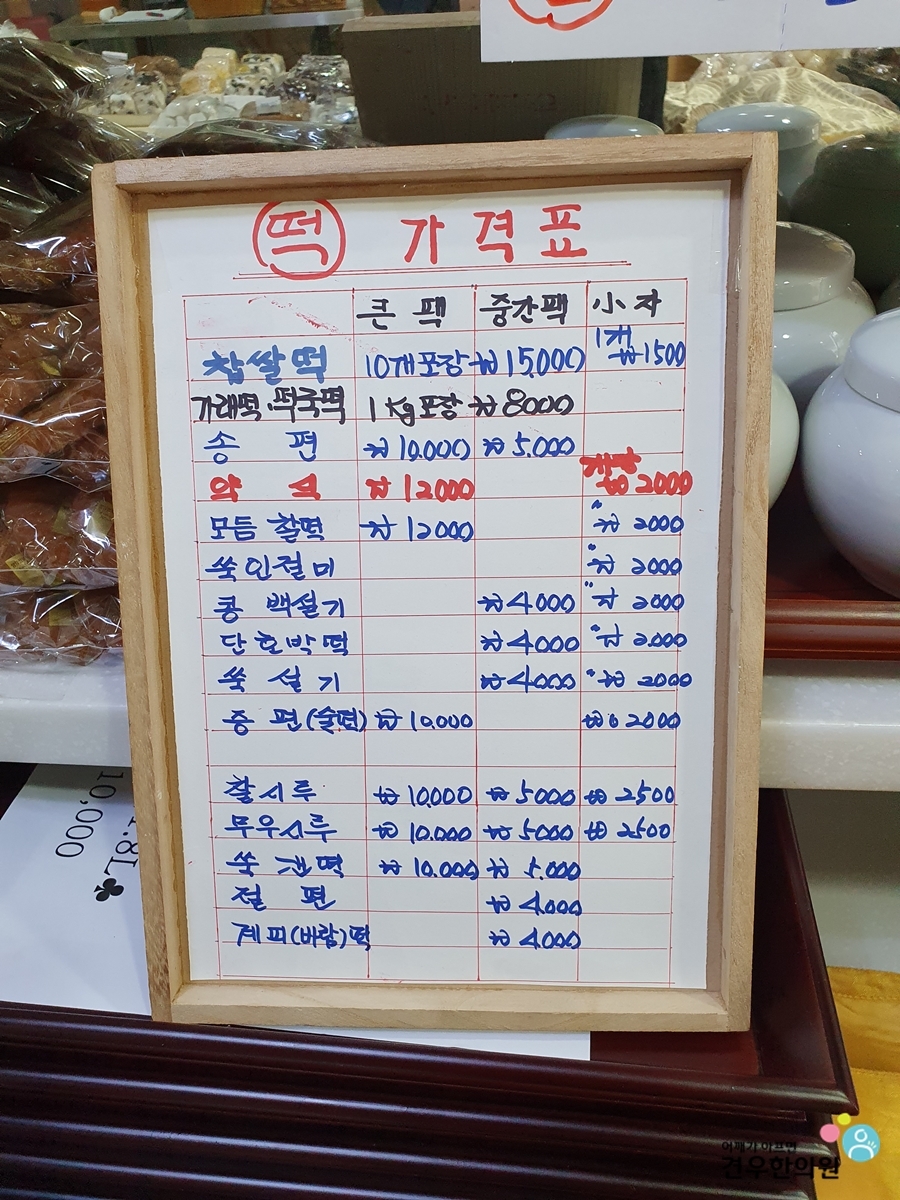 떡 가격표
큰 팩 중간팩 小 자
찹쌀떡 10개포장 ₩15,000 1개 ₩1500
가래떡.떡국떡 1kg포장 ₩8000
송 편 ₩10,000 ₩5,000
약 식 ₩12000 ₩2000
모듬 찰떡 ₩12000 " ₩2000
쑥인절미 " ₩2000
콩 백설기 ₩4000 " ₩2000
단호박떡 ₩4000 " ₩2000
쑥 설기 ₩4000 " ₩2000
증 편(술떡) ₩10,000 ₩2000
찰시루 ₩10,000 ₩5000 ₩2500
무우시루 ₩10,000 ₩5000 ₩2500
쑥 갠떡 ₩10,000 ₩5,000
절 편 ₩4,000
계피(바람)떡 ₩4000
10,000
1.8L
어깨가 아프면
견우한의원